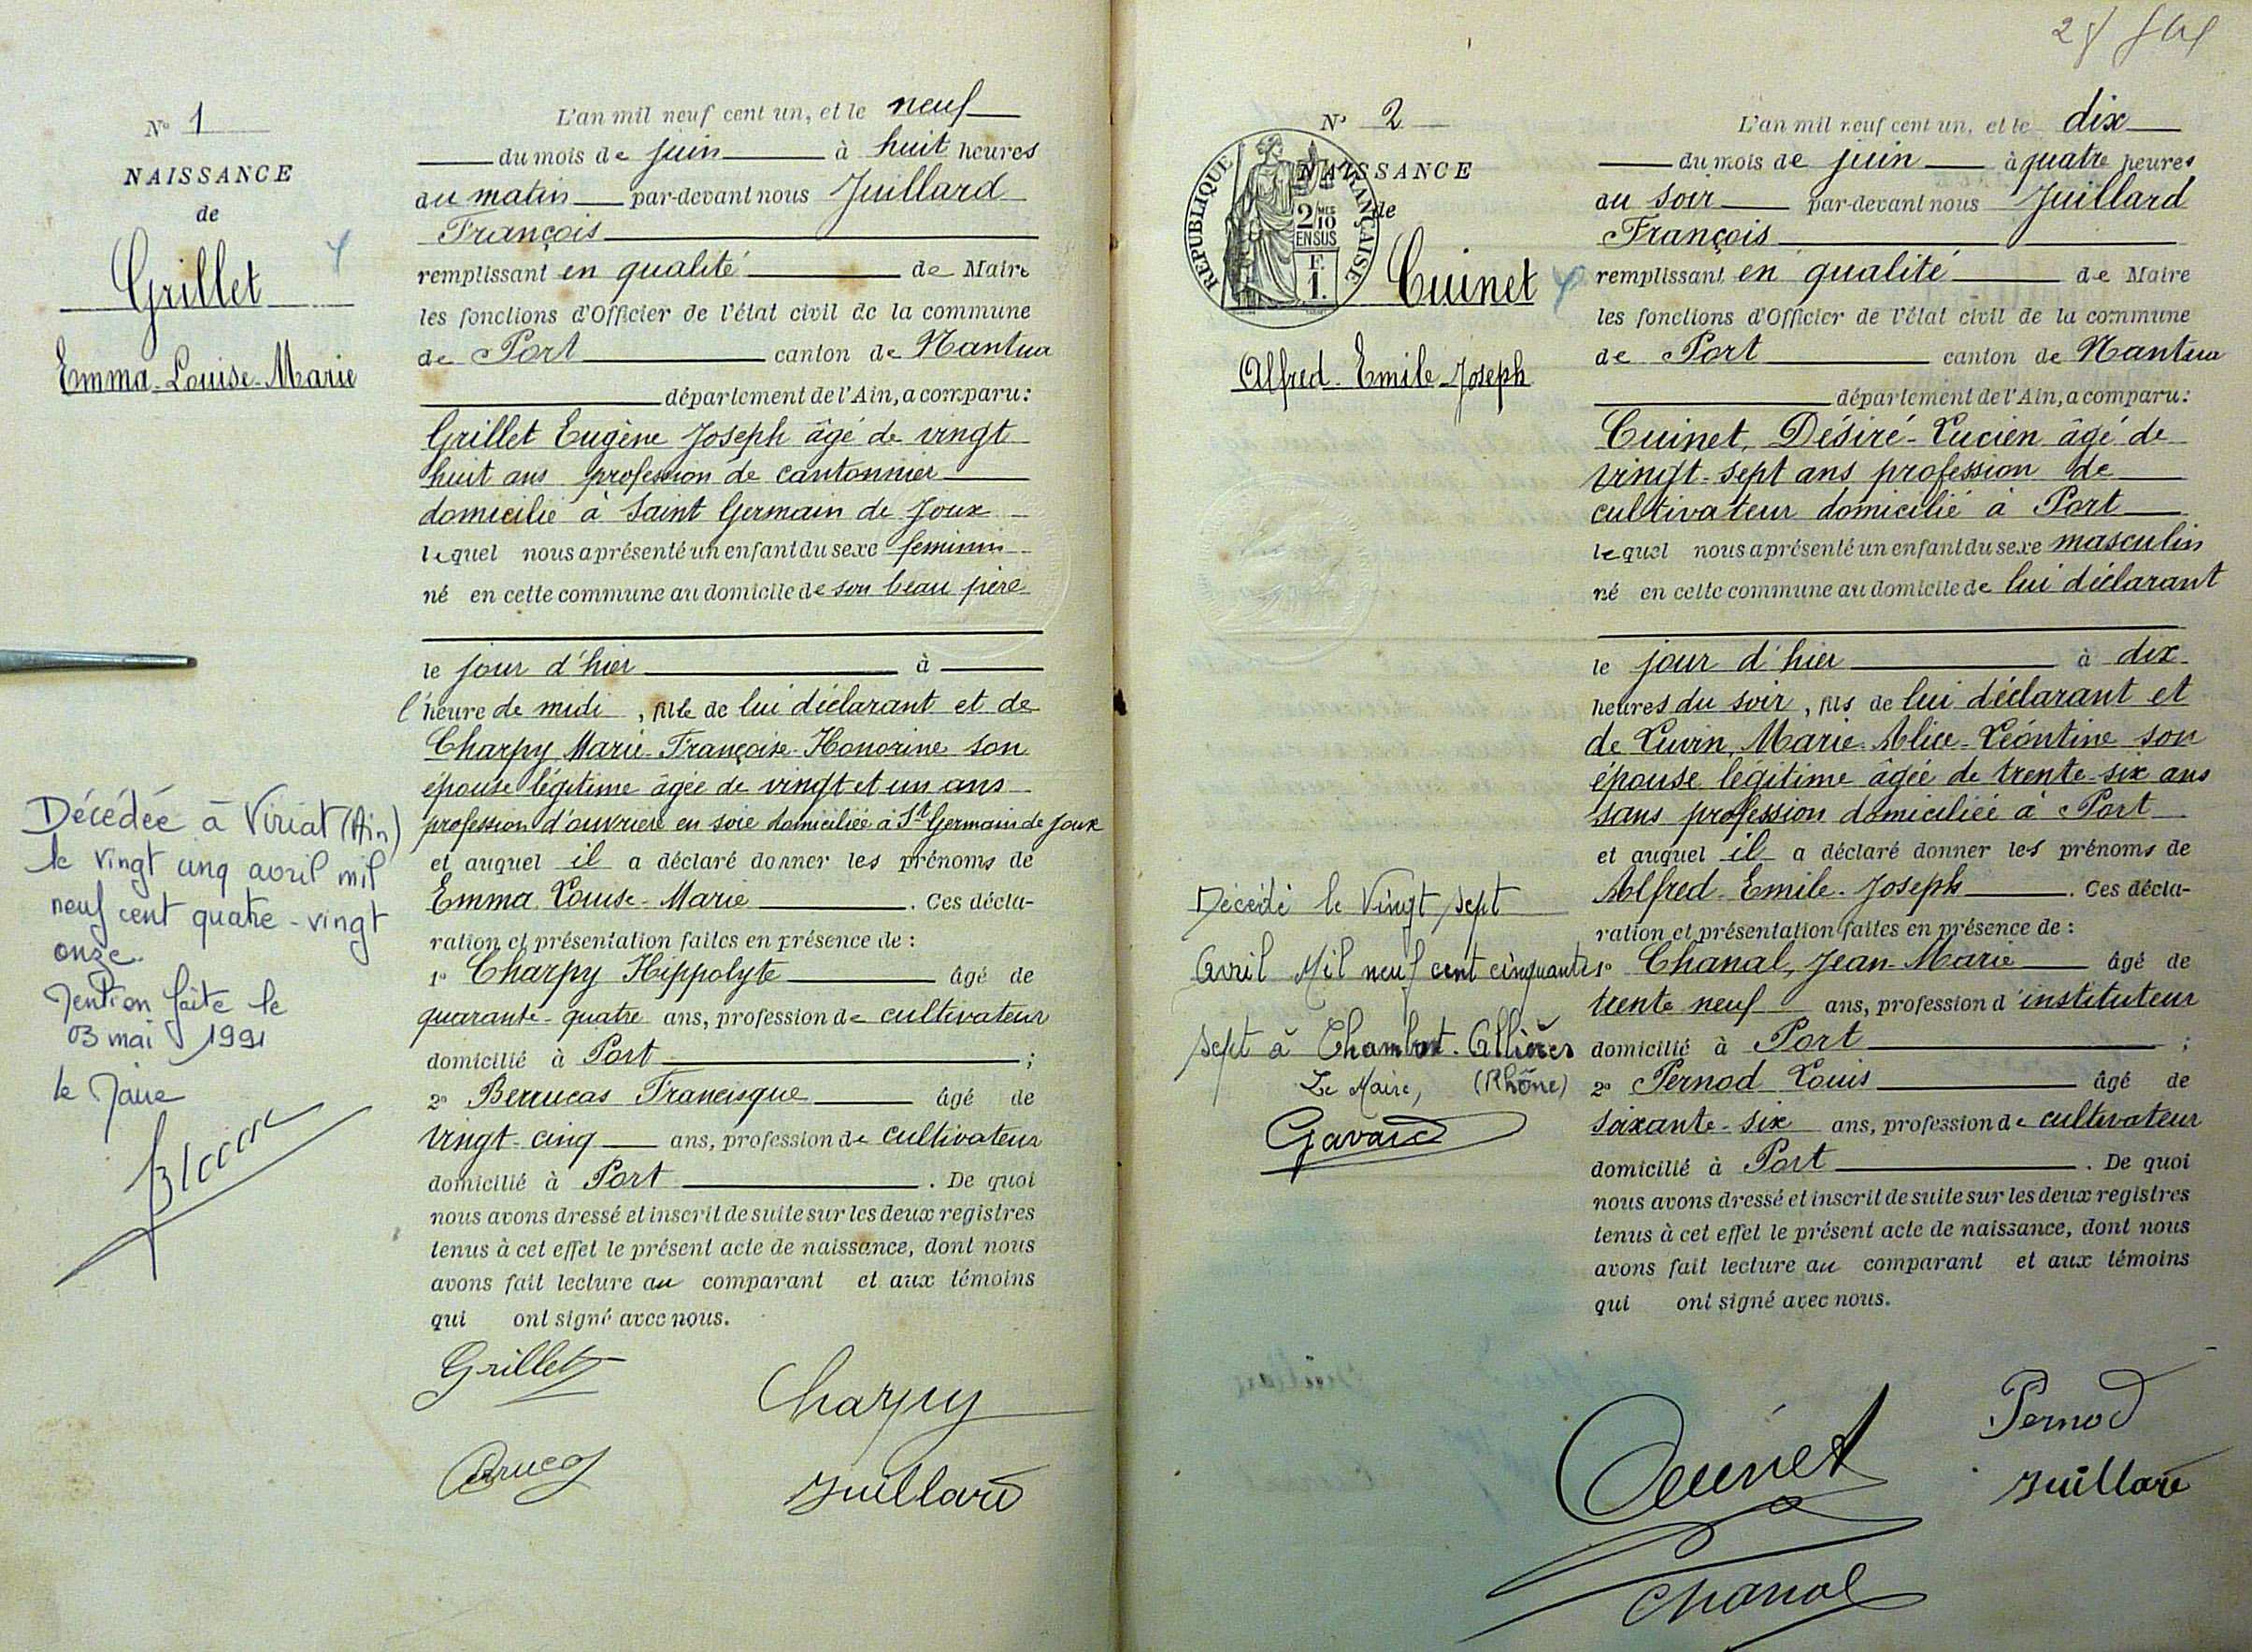 N° 1
NAISSANCE
de
Grillet
Emma-Louise-Marie
Décédée à Viriat (Ain)
le vingt cinq avril mil
neuf cent quatre-vingt
onze.
Mention faite le
03 mai 1991
le Maire
L'an mil neuf cent un, et le neuf
du mois de juin à huit heures
au matin par-devant nous Juillard
François
remplissant en qualité de Maire
les fonctions d'Officier de l'état civil de la commune
de Port canton de Nantua
département de l'Ain, a comparu:
Grillet Eugène Joseph âgé de vingt
huit ans profession de cantonnier
domicilié à Saint Germain de Joux
lequel nous a présenté un enfant du sexe feminin
né en cette commune au domicile de son beau père
le jour d'hier à
l'heure de midi, fille de lui déclarant et de
Charpy Marie-Françoise-Honorine son
épouse légitime âgée de vingt et un ans
profession d'ouvriere en soie domiciliée à St Germain de Joux
et auquel il a déclaré donner les prénoms de
Emma Louise-Marie. Ces décla-
ration et présentation faites en présence de :
1° Charpy Hippolyte âgé de
quarante-quatre ans, profession de cultivateur
domicilié à Port ;
2° Berrucas Francisque âgé de
vingt-cinq ans, profession de cultivateur
domicilié à Port. De quoi
nous avons dressé et inscrit de suite sur les deux registres
tenus à cet effet le présent acte de naissance, dont nous
avons fait lecture au comparant et aux témoins
qui ont signé avec nous.
Grillet
Charpy
Juillard
N° 2
NAISSANCE
de
RÉPUBLIQUE FRANÇAISE
2/10 MES
EN SUS
F.
1.
Cuinet
Alfred-Emile-Joseph
Décédé le Vingt sept
Avril Mil neuf cent cinquante
sept à Chambost-Allières
(Rhône)
Le Maire,
Gavard
L'an mil neuf cent un, et le dix
du mois de juin à quatre heures
au soir par-devant nous Juillard
François
remplissant en qualité de Maire
les fonctions d'Officier de l'état civil de la commune
de Port canton de Nantua
département de l'Ain, a comparu:
Cuinet, Désiré-Lucien âgé de
vingt-sept ans profession de
cultivateur domicilié à Port
lequel nous a présenté un enfant du sexe masculin
né en cette commune au domicile de lui déclarant
le jour d'hier à dix
heures du soir, fils de lui déclarant et
de Luvin, Marie-Alice-Léontine son
épouse légitime âgée de trente-six ans
sans profession domiciliée à Port
et auquel il a déclaré donner les prénoms de
Alfred-Emile-Joseph. Ces décla-
ration et présentation faites en présence de :
1° Chanal, Jean-Marie âgé de
trente neuf ans, profession d'instituteur
domicilié à Port ;
2° Pernod Louis âgé de
soixante-six ans, profession de cultivateur
domicilié à Port. De quoi
nous avons dressé et inscrit de suite sur les deux registres
tenus à cet effet le présent acte de naissance, dont nous
avons fait lecture au comparant et aux témoins
qui ont signé avec nous.
Pernod
Cuinet
Juillard
Chanal